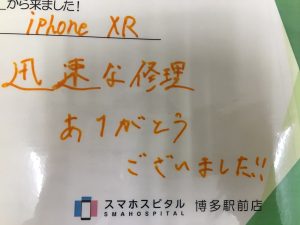 から来ました!
iphone XR
迅速な修理
ありがとう
ございました!!
スマホスピタル 博多駅前店
SMAHOSPITAL